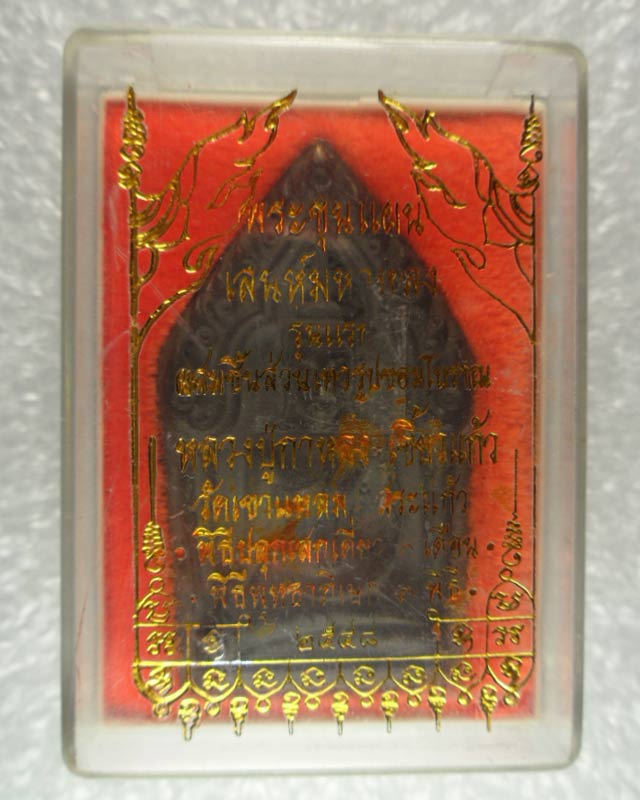 พระขุนแผน
เสน่ห์มหาหลง
รุ่นแรก
ผสมชิ้นส่วนเทวรูปขอมโบราณ
หลวงปู่กาหลง เขี้ยวแก้ว
วัดเขาแหลม สระแก้ว
พิธีปลุกเสกเดี่ยว เดือน
พิธีพุทธาภิเษก ๓ พิธี
๒๕๔๘